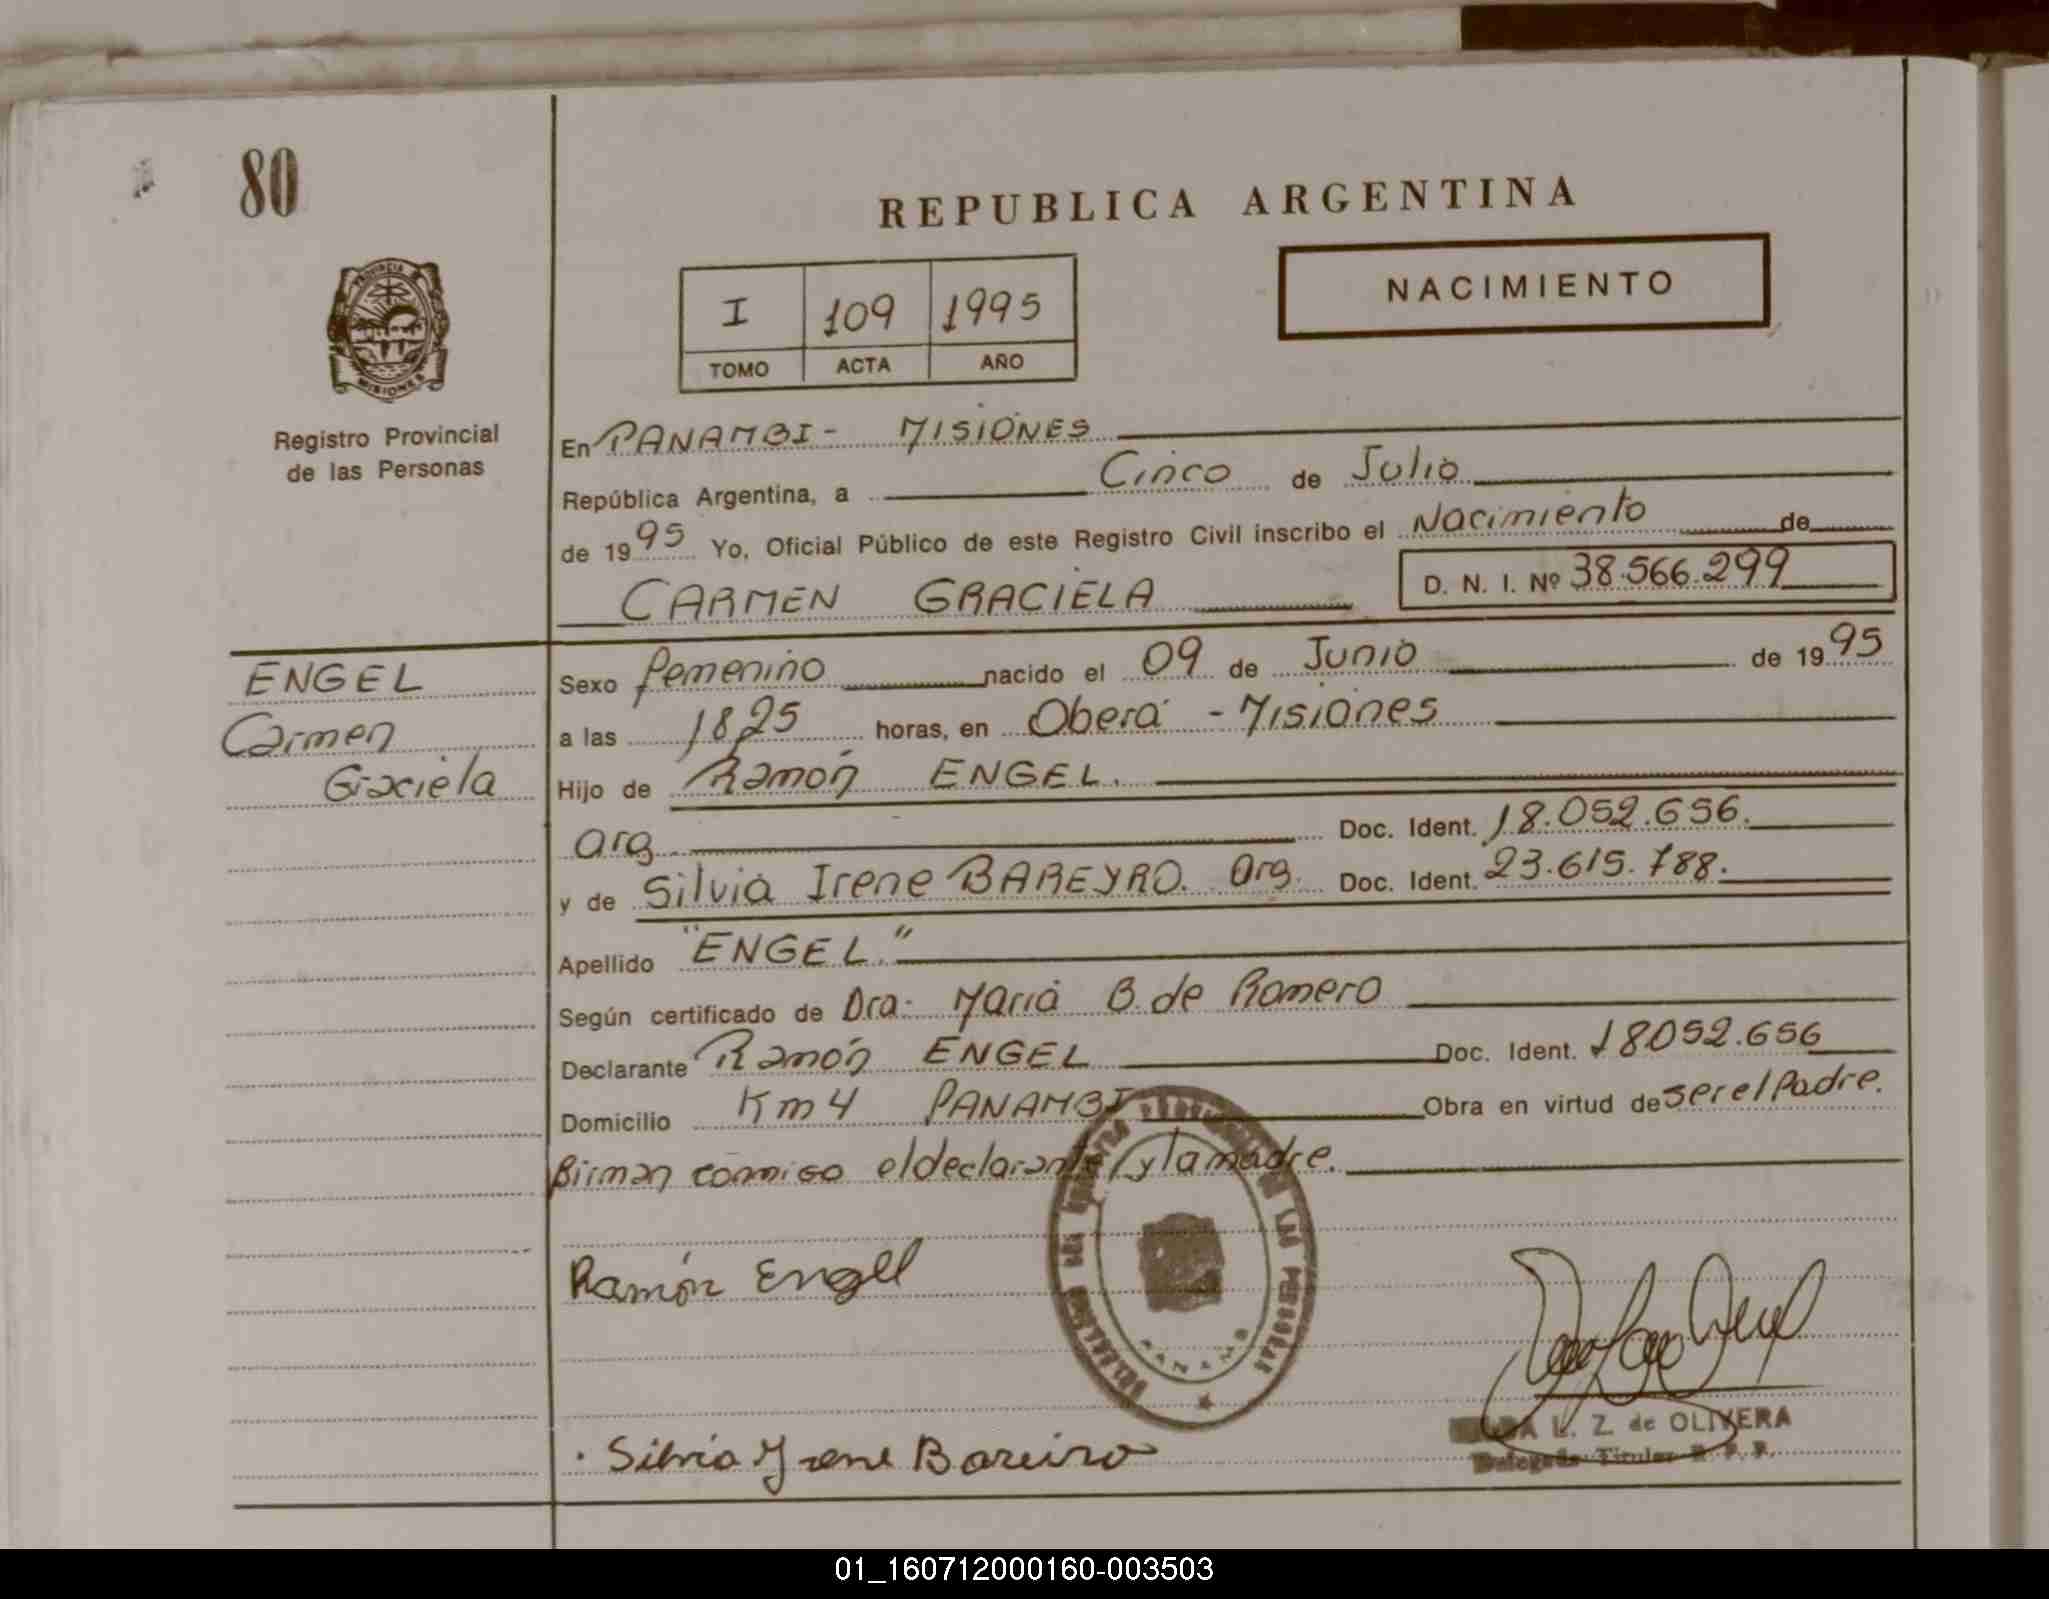 80
REPUBLICA ARGENTINA
PROVINCIA DE
MISIONES
I 109 1995
TOMO ACTA AÑO
NACIMIENTO
Registro Provincial
de las Personas
En PANAMBI - MISIONES
República Argentina, a Cinco de Julio
de 1995 Yo, Oficial Público de este Registro Civil inscribo el Nacimiento de
CARMEN GRACIELA D. N. I. Nº 38.566.299
ENGEL
Carmen
Graciela
Sexo femenino nacido el 09 de Junio de 1995
a las 18,25 horas, en Oberá - Misiones
Hijo de Ramón ENGEL.
arg. Doc. Ident. 18.052.656.
y de Silvia Irene BAREYRO. arg. Doc. Ident. 23.615.788.
Apellido "ENGEL"
Según certificado de Dra. María B. de Romero
Declarante Ramón ENGEL Doc. Ident. 18052.656
Domicilio Km 4 PANAMBI Obra en virtud de ser el Padre.
Firman conmigo el declarante y la madre.
Ramón Engel
PANAMBI
L. Z. de OLIVERA
Delegada Titular R. P. P.
Silvia Yrene Bareiro
01_160712000160-003503